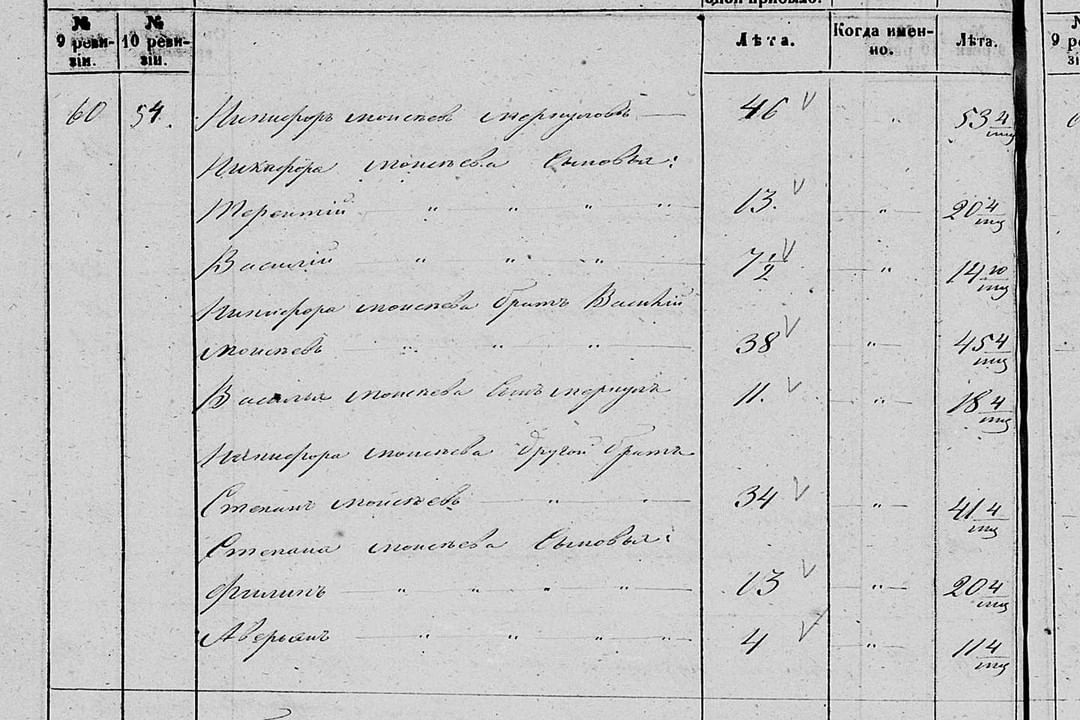 ѣ прибыло.
№ 9 реви-зіи.
№ 10 реви-зіи.
Лѣта.
Когда имен-но.
Лѣта.
№ 9 ре
60 54. Никифоръ Моисѣевъ Меркуловъ 46 " 53 4/мц
Никифора Моисѣева Сыновья:
Терентій " " " " 13. " 20 4/мц
Василій " " " 7 1/2 " 14 10/мц
Никифора Моисѣева братъ Василій
Моисѣевъ " " " 38 " 45 4/мц
Василья Моисѣева Сынъ Меркулъ 11. " 18 4/мц
Никифора Моисѣева другой братъ
Степанъ Моисѣевъ " " 34 " 41 4/мц
Степана Моисѣева Сыновья:
Филипъ " " " " 13 " 20 4/мц
Аверьянъ " " " " 4 " 11 4/мц